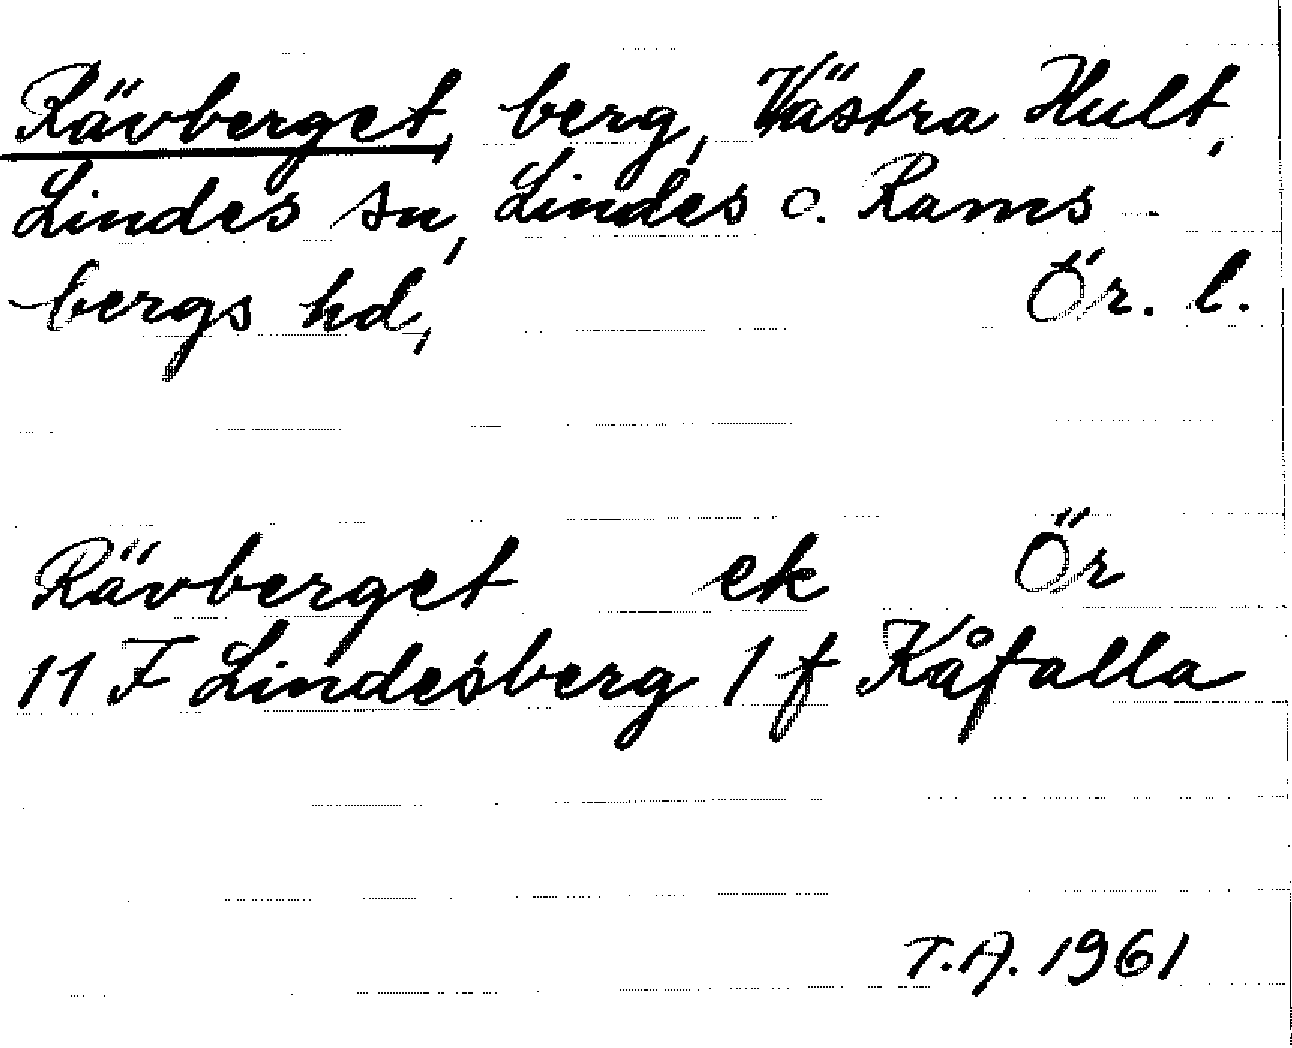 Rävberget, berg, Västra Hult,
Lindes sn, Lindes o. Rams
bergs hd, Ör. l.
Rävberget ek Ör
11 F Lindesberg 1 f Kåfalla
T.A. 1961